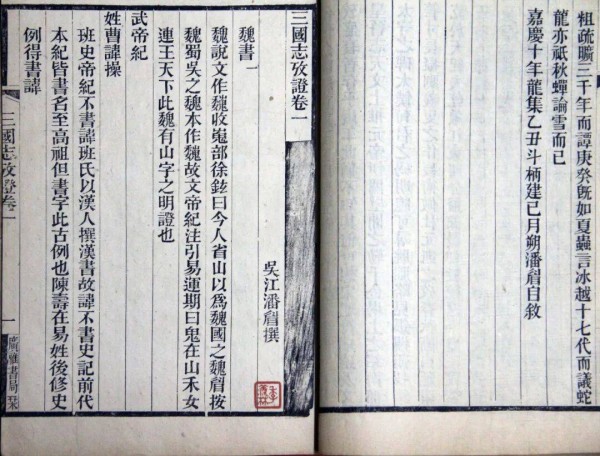 祖疏曠三千年而譚庚癸旣如夏蟲言冰越十七代而議蛇
龍亦祇秋蟬諭雪而已
嘉慶十年龍集乙丑斗柄建巳月朔潘眉自敘
三國志攷證卷一
吳江潘眉撰
魏書一
魏說文作巍收嵬部徐鉉曰今人省山以爲魏國之魏眉按
魏蜀吳之魏本作巍故文帝紀注引易運期曰鬼在山禾女
連王天下此魏有山字之明證也
武帝紀
姓曹諱操
班史帝紀不書諱班氏以漢人撰漢書故諱不書史記前代
本紀皆書名至高祖但書字此古例也陳壽在易姓後修史
例得書諱
三國志攷證卷一
一
廣雅書局栞